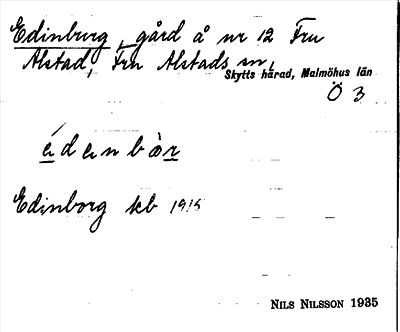 Edinburg, gård å nr 12 Fru
Alstad, Fru Alstads sn,
Skytts härad, Malmöhus län
Ö 3
édenbòr
Edinborg kb 1915
NILS NILSSON 1935